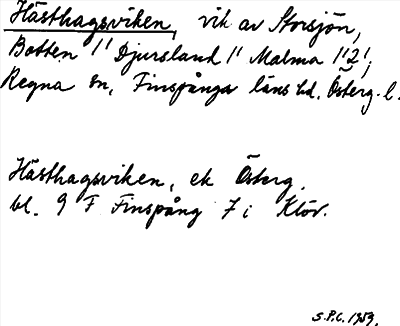 Hästhagsviken, vik av Storsjön,
Botten 1¹ Djursland 1¹ Malma 1¹2¹,
Regna sn, Finspånga läns hd. Österg. l.
Hästhagsviken, ek Österg.
bl. 9 F Finspång 7 i Klöv.
S.P.C. 1959.